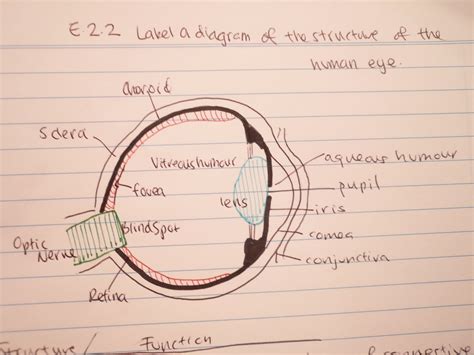 E.2.2 Label a diagram of the structure of the
human eye.
choroid
Sclera
Vitreous humour
aqueous humour
fovea
lens
pupil
iris
Blind Spot
Optic
Nerve
cornea
conjunctiva
Retina
Structure
Function